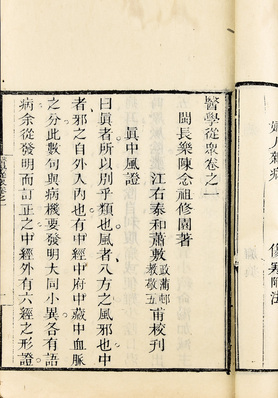 婦人雜病
傷寒附法
醫學從衆卷之一
閩長樂陳念祖修園著
江右泰和蕭敷政蒲邨教敬五甫校刊
眞中風證
曰眞者所以别乎類也風者八方之風邪也中
者邪之自外入内也有中經中府中藏中血脈
之分此數句與病機要發明大同小異各有語
病余從發明而訂正之中經外有六經之形證